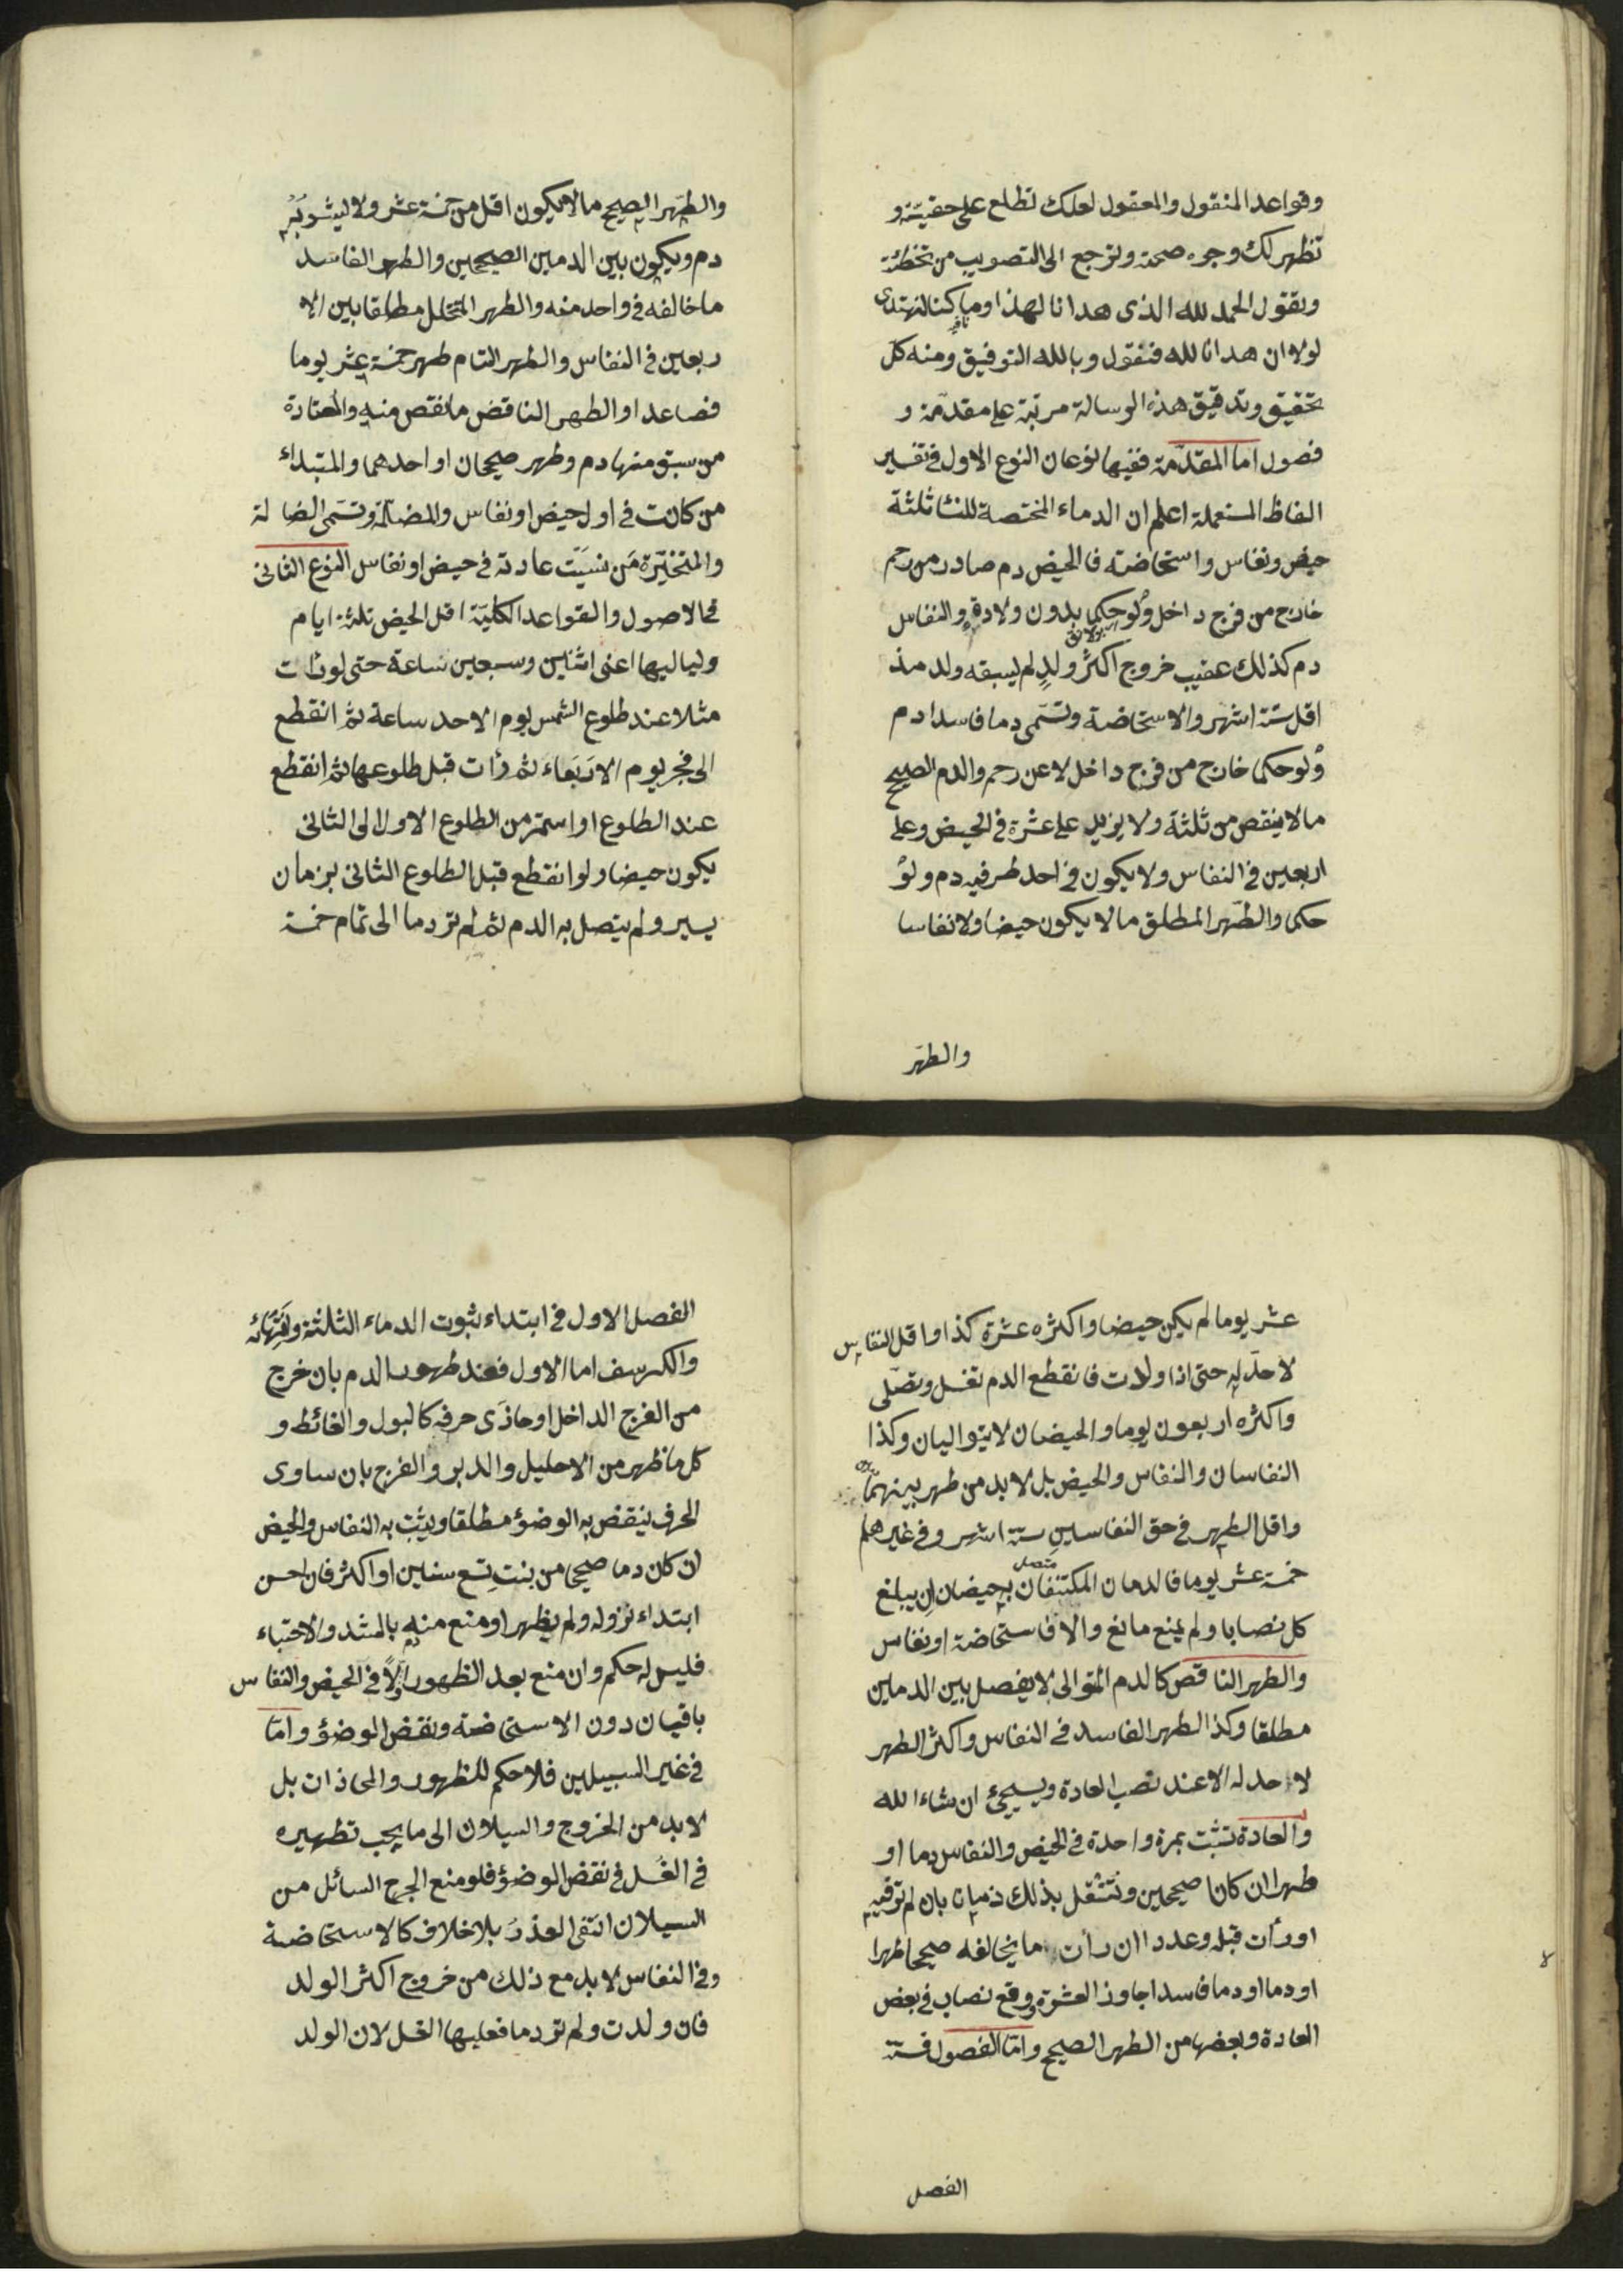 وقواعد المنقول والمعقول لعلك تطلع على حقيته و
تظهر لك وجوه صحته وترجع الى التصويب من تخطئته
وتقول الحمد لله الذى هدانا لهذا وما كنا لنهتدى
لولا ان هدانا الله فنقول وبالله التوفيق ومنه كل
تحقيق وتدقيق هذه الرسالة مرتبة على مقدمة و
فصول اما المقدمة ففيها نوعان النوع الاول فى تفسير
الفاظ المستعملة اعلم ان الدماء المختصة للنسا ثلثة
حيض ونفاس واستحاضة فالحيض دم صادر من رحم
خارج من فرج داخل ولو حكما بدون ولادة والنفاس
دم كذلك عقيب خروج اكثر ولد لم يسبقه ولد مذ
اقل ستة اشهر والاستحاضة وتسمى دما فاسدا دم
ولو حكما خارج من فرج داخل لا عن رحم والدم الصحيح
ما لا ينقص من ثلثة ولا يزيد على عشرة فى الحيض وعلى
اربعين فى النفاس ولا يكون فى احد طرفيه دم ولو
حكما والطهر المطلق ما لا يكون حيضا ولا نفاسا
والطهر
والطهر الصحيح ما لا يكون اقل من خمسة عشر ولا يشوبه
دم ويكون بين الدمين الصحيحين والطهر الفاسد
ما خالفه فى واحد منه والطهر المتخلل مطلقا بين الا
ربعين فى النفاس والطهر التام طهر خمسة عشر يوما
فصاعدا والطهر الناقض ما نقص منه والمعتادة
من سبق منها دم وطهر صحيحان او احدهما والمبتداء
من كانت فى اول حيض او نفاس والمضلة وتسمى الضالة
والمتحيرة من نسيت عادته فى حيض او نفاس النوع الثانى
فى الاصول والقواعد الكلية اقل الحيض ثلثة ايام
ولياليها اعنى اثنين وسبعين ساعة حتى لو رأت
مثلا عند طلوع الشمس يوم الاحد ساعة ثم انقطع
الى فجر يوم الاربعاء ثم رأت قبل طلوعها ثم انقطع
عند الطلوع او استمر من الطلوع الاول الى الثانى
يكون حيضا ولو انقطع قبل الطلوع الثانى بزمان
يسير ولم يتصل به الدم ثم لم تر دما الى تمام خمسة
عشر يوما لم يكن حيضا واكثره عشرة كذا واقل النفاس
لا حد له حتى اذا ولدت فانقطع الدم تغسل وتصلى
واكثره اربعون يوما والحيضان لا يتواليان وكذا
النفاسان والنفاس والحيض بل لا بد من طهر بينهما
واقل الطهر فى حق النفاسين ستة اشهر وفى غيرهما
خمسة عشر يوما فالدمان المكتنفان به حيضان ان يبلغ
متصل
كل نصابا ولم يمنع مانع والا فاستحاضة او نفاس
والطهر الناقص كالدم المتوالى لا يفصل بين الدمين
مطلقا وكذا الطهر الفاسد فى النفاس واكثر الطهر
لا حد له الا عند نصب العادة وسيجئ ان شاء الله
والعادة تثبت بمرة واحدة فى الحيض والنفاس دما او
طهرا ان كانا صحيحين وتنتقل بذلك زمانا بان لم تر فيه
او رأت قبله وعددا ان رأت ما يخالفه صحيحا طهرا
او دما او دما فاسدا جاوز العشرة ووقع نصاب فى بعض
العادة وبعضها من الطهر الصحيح واما الفصول فستة
الفصل
الفصل الاول فى ابتداء ثبوت الدماء الثلثة وانتهائه
والكرسف اما الاول فعند ظهور الدم بان خرج
من الفرج الداخل او حاذى حرفه كالبول والغائط و
كل ما ظهر من الاحليل والدبر والفرج بان ساوى
الحرف ينقض به الوضؤ مطلقا ويثبت به النفاس والحيض
ان كان دما صحيحا من بنت تسع سنين او اكثر فان احس
ابتداء نزوله ولم يظهر او منع منه بالشد والاحتباء
فليس له حكم وان منع بعد الظهور اولا فى الحيض والنفاس
باقيان دون الاستحاضة ونقض الوضؤ واما
فى غير السبيلين فلا حكم للظهور والمحاذات بل
لا بد من الخروج والسيلان الى ما يجب تطهيره
فى الغسل فى نقض الوضؤ فلو منع الجرح السائل من
السيلان انتفى العذر بلا خلاف كالاستحاضة
وفى النفاس لا بد مع ذلك من خروج اكثر الولد
فان ولدت ولم تر دما فعليها الغسل لان الولد